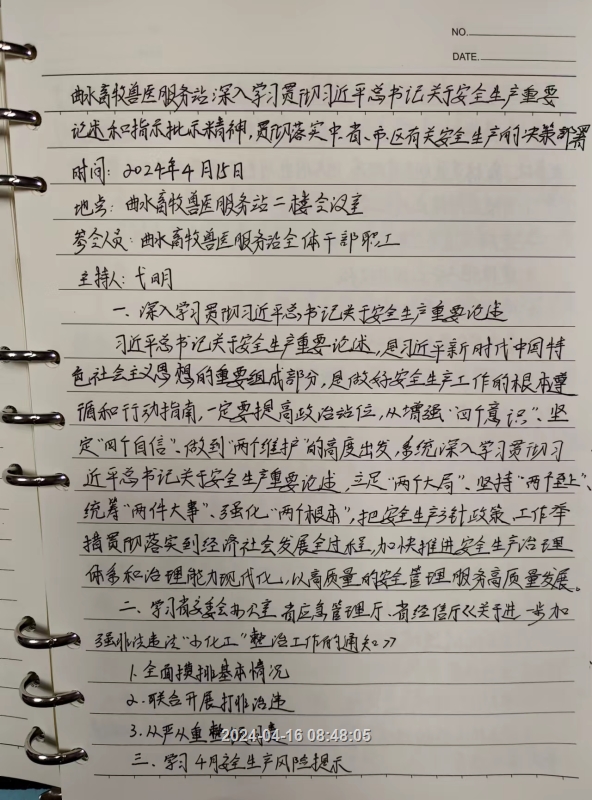 NO.
DATE.
曲水畜牧兽医服务站深入学习贯彻习近平总书记关于安全生产重要
论述和指示批示精神,贯彻落实中、省、市、区有关安全生产的决策部署
时间:2024年4月15日
地点:曲水畜牧兽医服务站二楼会议室
参会人员:曲水畜牧兽医服务站全体干部职工
主持人:弋明
一、深入学习贯彻习近平总书记关于安全生产重要论述
习近平总书记关于安全生产重要论述,是习近平新时代中国特
色社会主义思想的重要组成部分,是做好安全生产工作的根本遵
循和行动指南,一定要提高政治站位,从增强"四个意识"、坚
定"四个自信"、做到"两个维护"的高度出发,系统深入学习贯彻习
近平总书记关于安全生产重要论述,立足"两个大局"、坚持"两个至上"、
统筹"两件大事"、强化"两个根本",把安全生产方针政策、工作举
措贯彻落实到经济社会发展全过程,加快推进安全生产治理
体系和治理能力现代化,以高质量的安全管理服务高质量发展。
二、学习省安委会办公室 省应急管理厅、省经信厅《关于进一步加
强非法违法"小化工"整治工作的通知》
1.全面摸排基本情况
2.联合开展打非治违
3.从严从重整
2024-04-16 08:48:05
三、学习4月安全生产风险提示